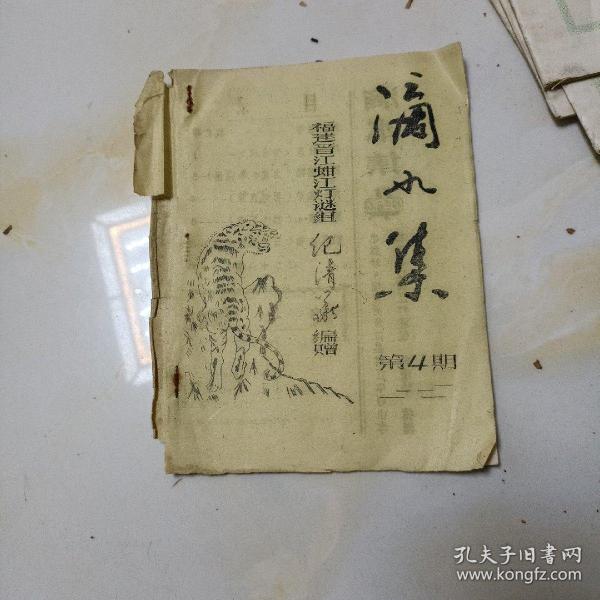 滴水集
第九期
福建晋江蚶江灯谜组 纪清 编赠
目
孔夫子旧书网
www.kongfz.com